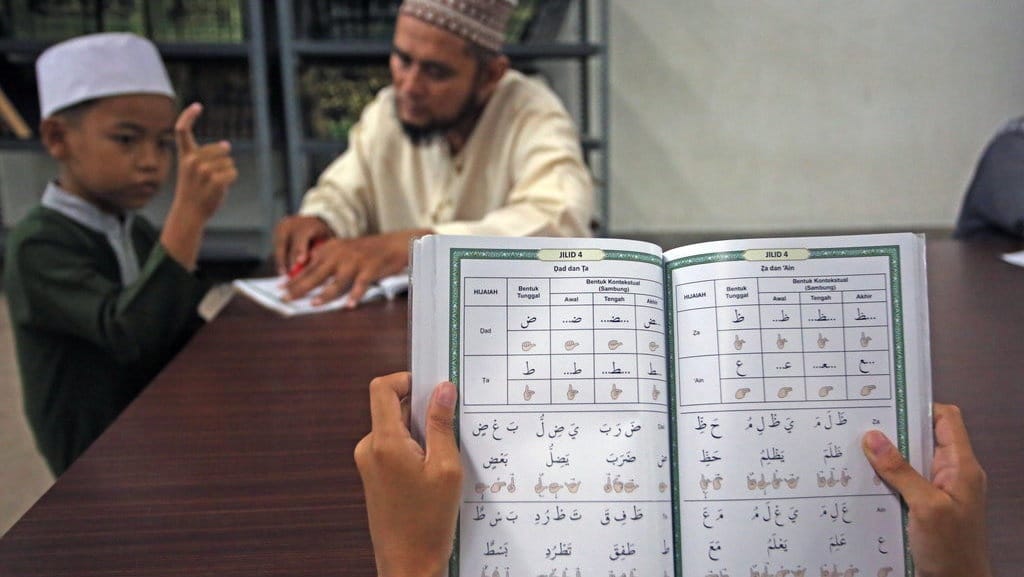 JILID 4
Ḍad dan Ṭa
HIJAIAH Bentuk Tunggal Bentuk Kontekstual (Sambung)
Awal Tengah Akhir
Ḍad ض ضـ... ...ضـ... ...ـض
Ṭa ط طـ... ...طـ... ...ـط
ضَ رَ بَ يَ ضِ لُّ بَ عْ ضٍ
ض ضَرَبَ يَضِلُّ بَعْضٍ
طَ فِ قَ تَ طْ رُ دِ بَ سْ طُ
ط طَفِقَ تَطْرُدِ بَسْطُ
JILID 4
Ẓa dan 'Ain
HIJAIAH Bentuk Tunggal Bentuk Kontekstual (Sambung)
Awal Tengah Akhir
Ẓa ظ ظـ... ...ظـ... ...ـظ
'Ain ع عـ... ...عـ... ...ـع
Ẓa ظَ لَ مَ يَ ظْ لِ مُ حَ ظِّ
ظَلَمَ يَظْلِمُ حَظِّ
Ain عَ لِ مَ يَ عْ لَ مُ مَ عَ
ع عَلِمَ يَعْلَمُ مَعَ